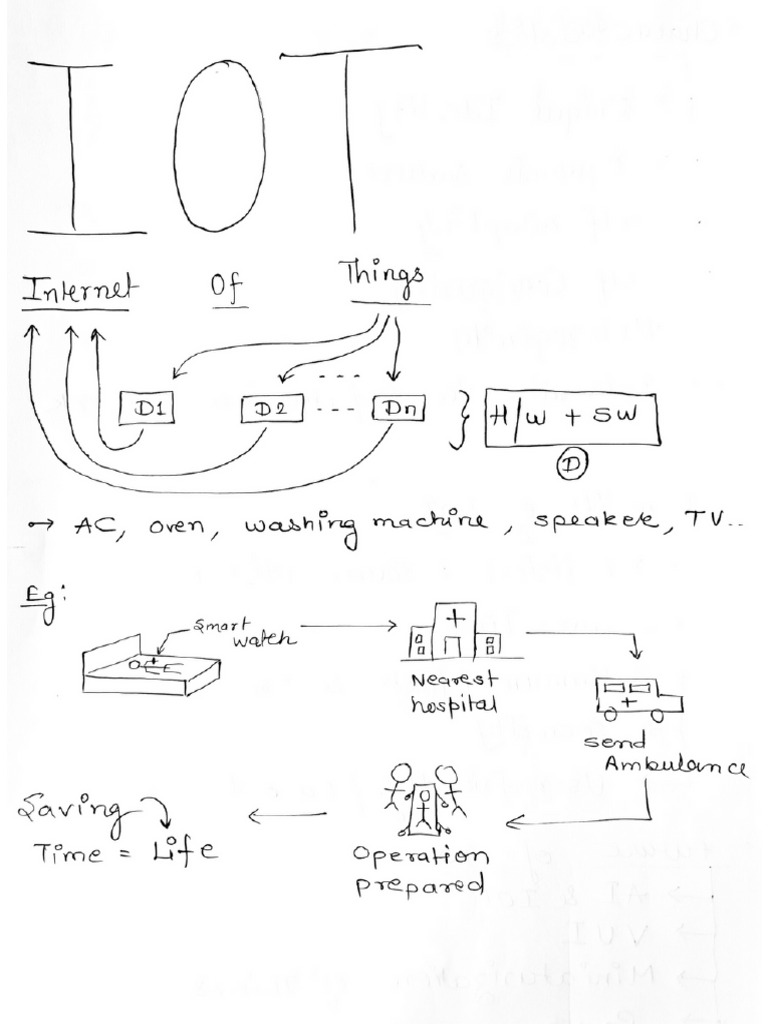 IOT
Internet Of Things
- - -
D1 D2 - - - Dn } H/W + SW
D
→ AC, oven, washing machine, speaker, TV..
Eg:
Smart
watch
+
Nearest
hospital
+
send
Ambulance
Operation
prepared
Saving
Time = Life